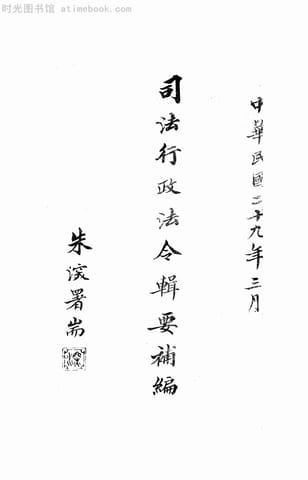 时光图书馆 atimebook.com
中華民國二十九年三月
司法行政法令輯要補編
朱深署耑